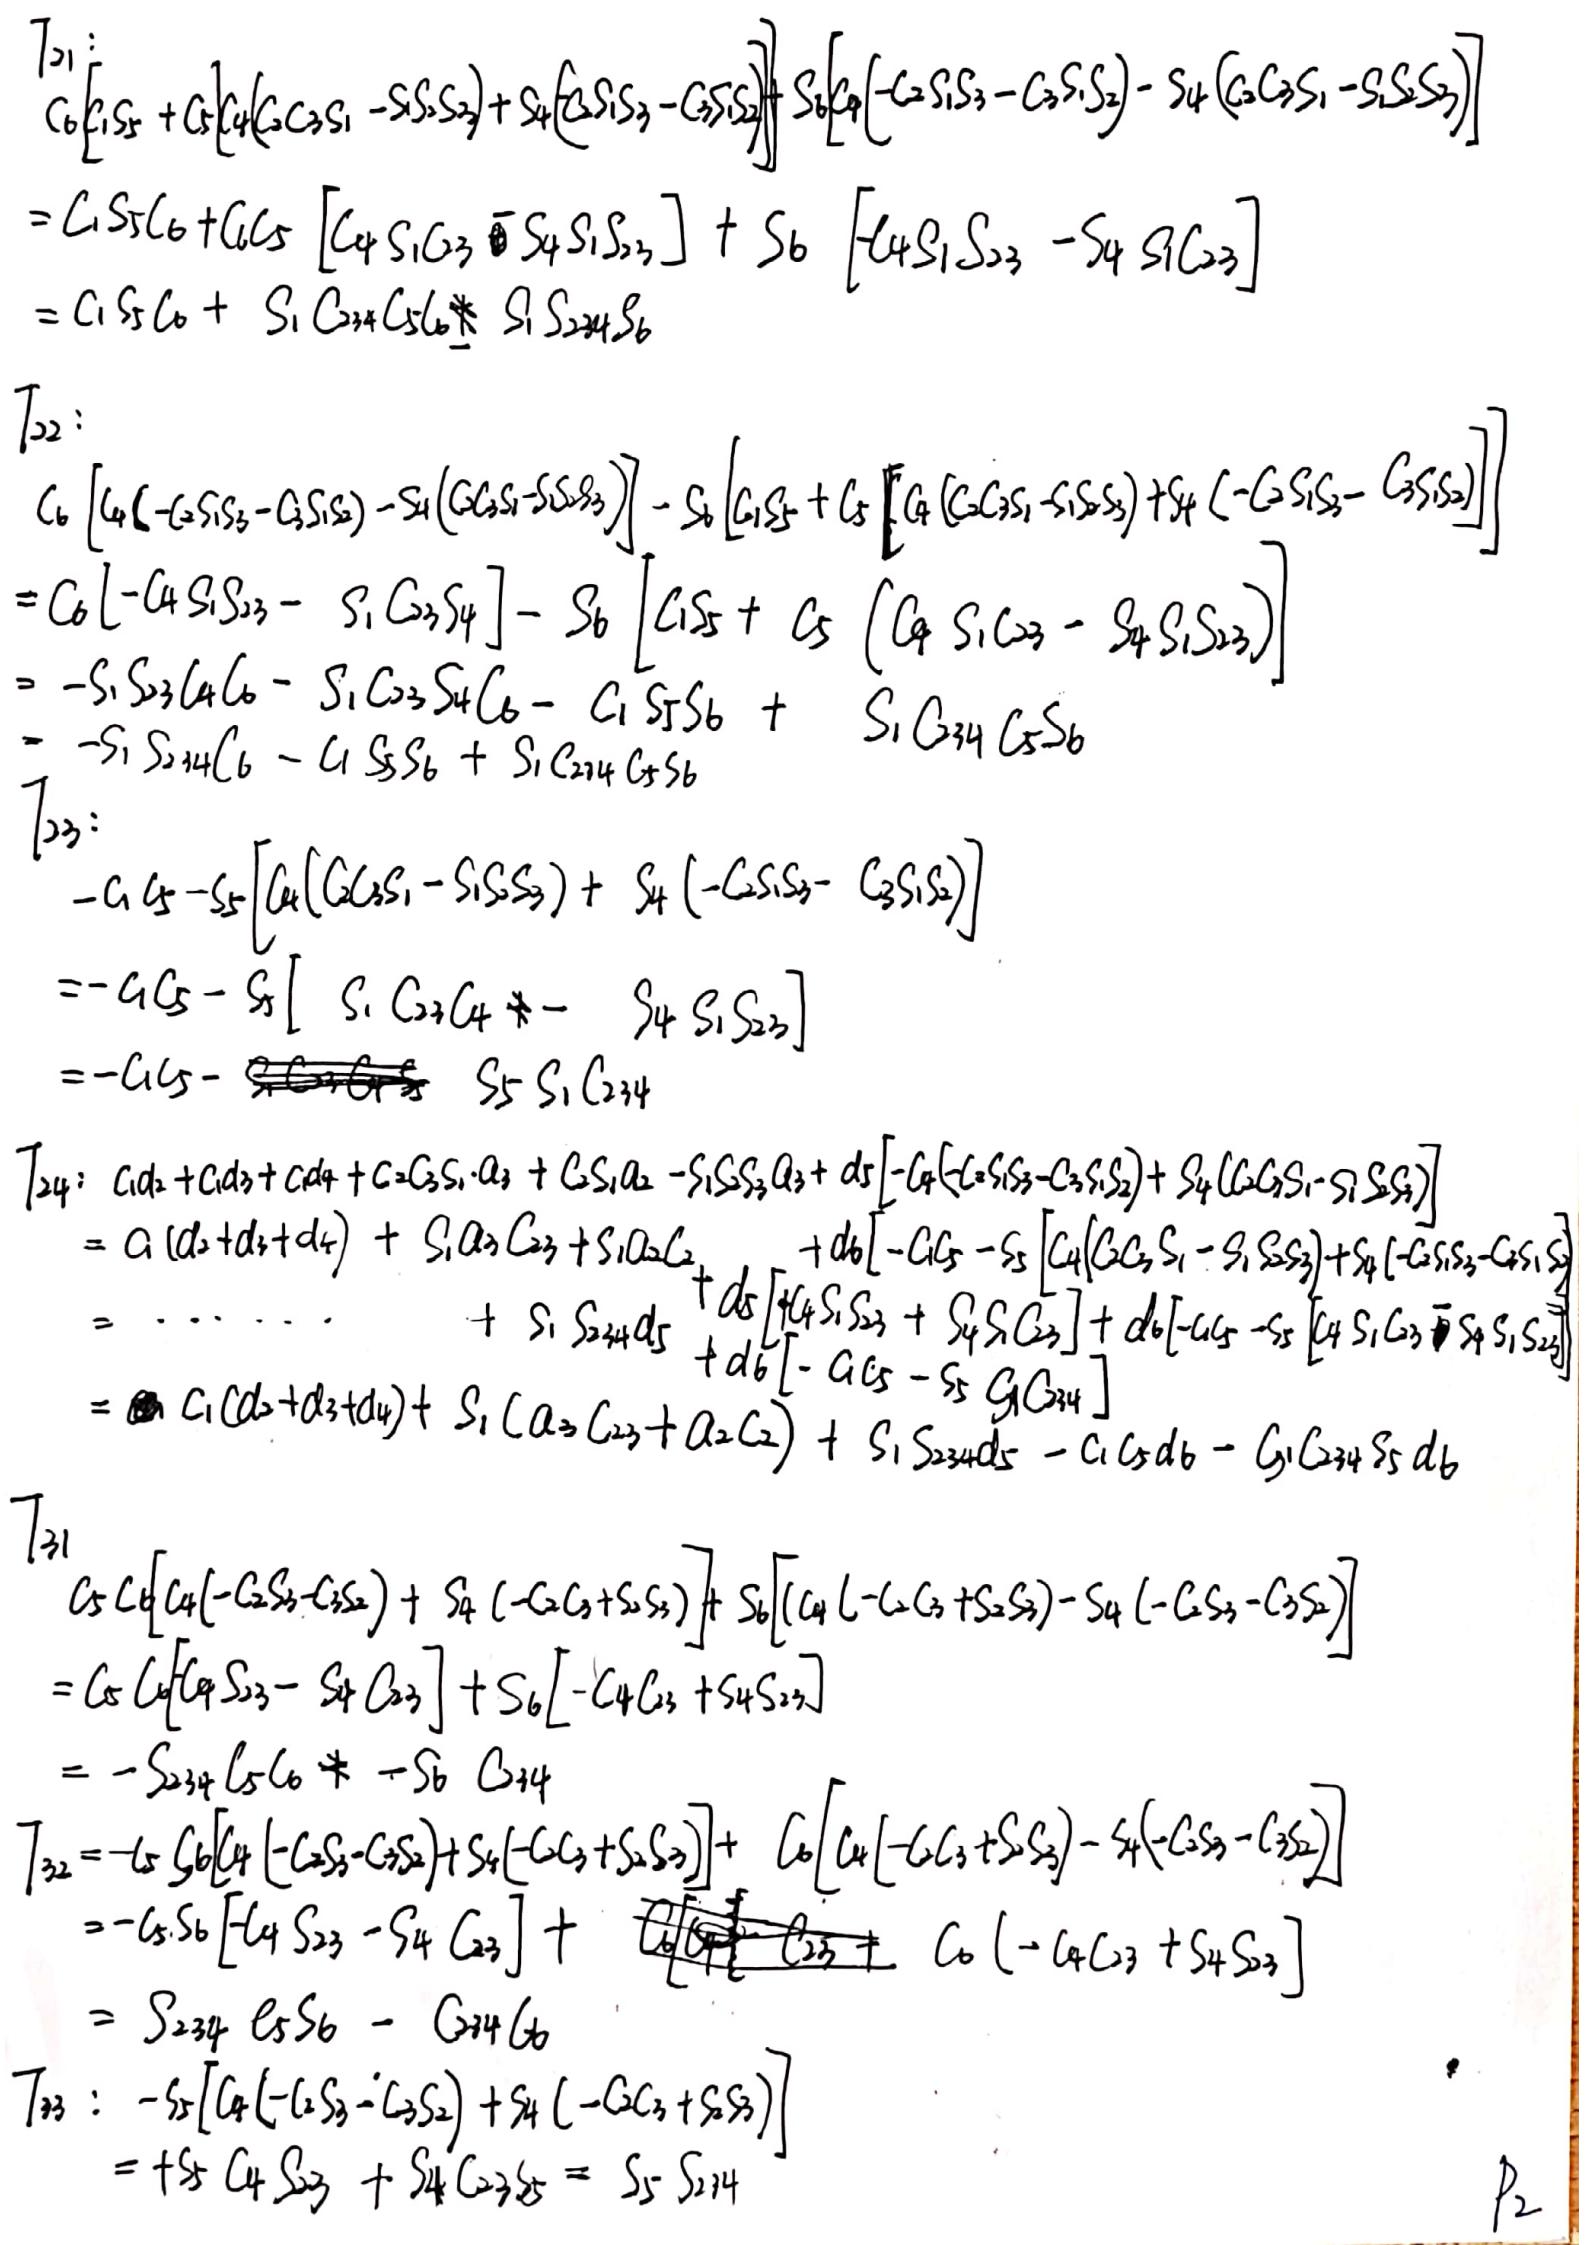 T21:
C6[C1S5 + C5[C4(C2C3S1 - S1S2S3) + S4(-C2S1S3 - C3S1S2)]] + S6[C4(-C2S1S3 - C3S1S2) - S4(C2C3S1 - S1S2S3)]
= C1S5C6 + C6C5 [C4S1C23 - S4S1S23] + S6 [-C4S1S23 - S4S1C23]
= C1S5C6 + S1C234C5C6 - S1S234S6
T22:
C6[C4(-C2S1S3 - C3S1S2) - S4(C2C3S1 - S1S2S3)] - S6[C1S5 + C5[C4(C2C3S1 - S1S2S3) + S4(-C2S1S3 - C3S1S2)]]
= C6[-C4S1S23 - S1C23S4] - S6[C1S5 + C5(C4S1C23 - S4S1S23)]
= -S1S23C4C6 - S1C23S4C6 - C1S5S6 + S1C234C5S6
= -S1S234C6 - C1S5S6 + S1C234C5S6
T23:
-C1C5 - S5[C4(C2C3S1 - S1S2S3) + S4(-C2S1S3 - C3S1S2)]
= -C1C5 - S5[S1C23C4 - S4S1S23]
= -C1C5 - S5S1C234
T24: C1d2 + C1d3 + C1d4 + C2C3S1·a3 + C2S1a2 - S1S2S3a3 + d5[-C4(-C2S1S3 - C3S1S2) + S4(C2C3S1 - S1S2S3)]
+ d6[-C1C5 - S5[C4(C2C3S1 - S1S2S3) + S4(-C2S1S3 - C3S1S2)
= C1(d2+d3+d4) + S1a3C23 + S1a2C2 + d5[+C4S1S23 + S4S1C23] + d6[-C1C5 - S5[C4S1C23 - S4S1S23]]
= ...... + S1S234d5 + d6[-C1C5 - S5S1C234]
= C1(d2+d3+d4) + S1(a3C23 + a2C2) + S1S234d5 - C1C5d6 - S1C234S5d6
T31
C5C6[C4(-C2S3-C3S2) + S4(-C2C3+S2S3)] + S6[(C4(-C2C3+S2S3) - S4(-C2S3-C3S2)]
= C5C6[-C4S23 - S4C23] + S6[-C4C23 + S4S23]
= -S234C5C6 - S6C234
T32 = -C5S6[C4(-C2S3-C3S2) + S4(-C2C3+S2S3)] + C6[C4(-C2C3+S2S3) - S4(-C2S3-C3S2)]
= -C5·S6[-C4S23 - S4C23] + C6(-C4C23 + S4S23]
= S234C5S6 - C234C6
T33: -S5[C4(-C2S3-C3S2) + S4(-C2C3+S2S3)]
= +S5C4S23 + S4C23S5 = S5S234
P2